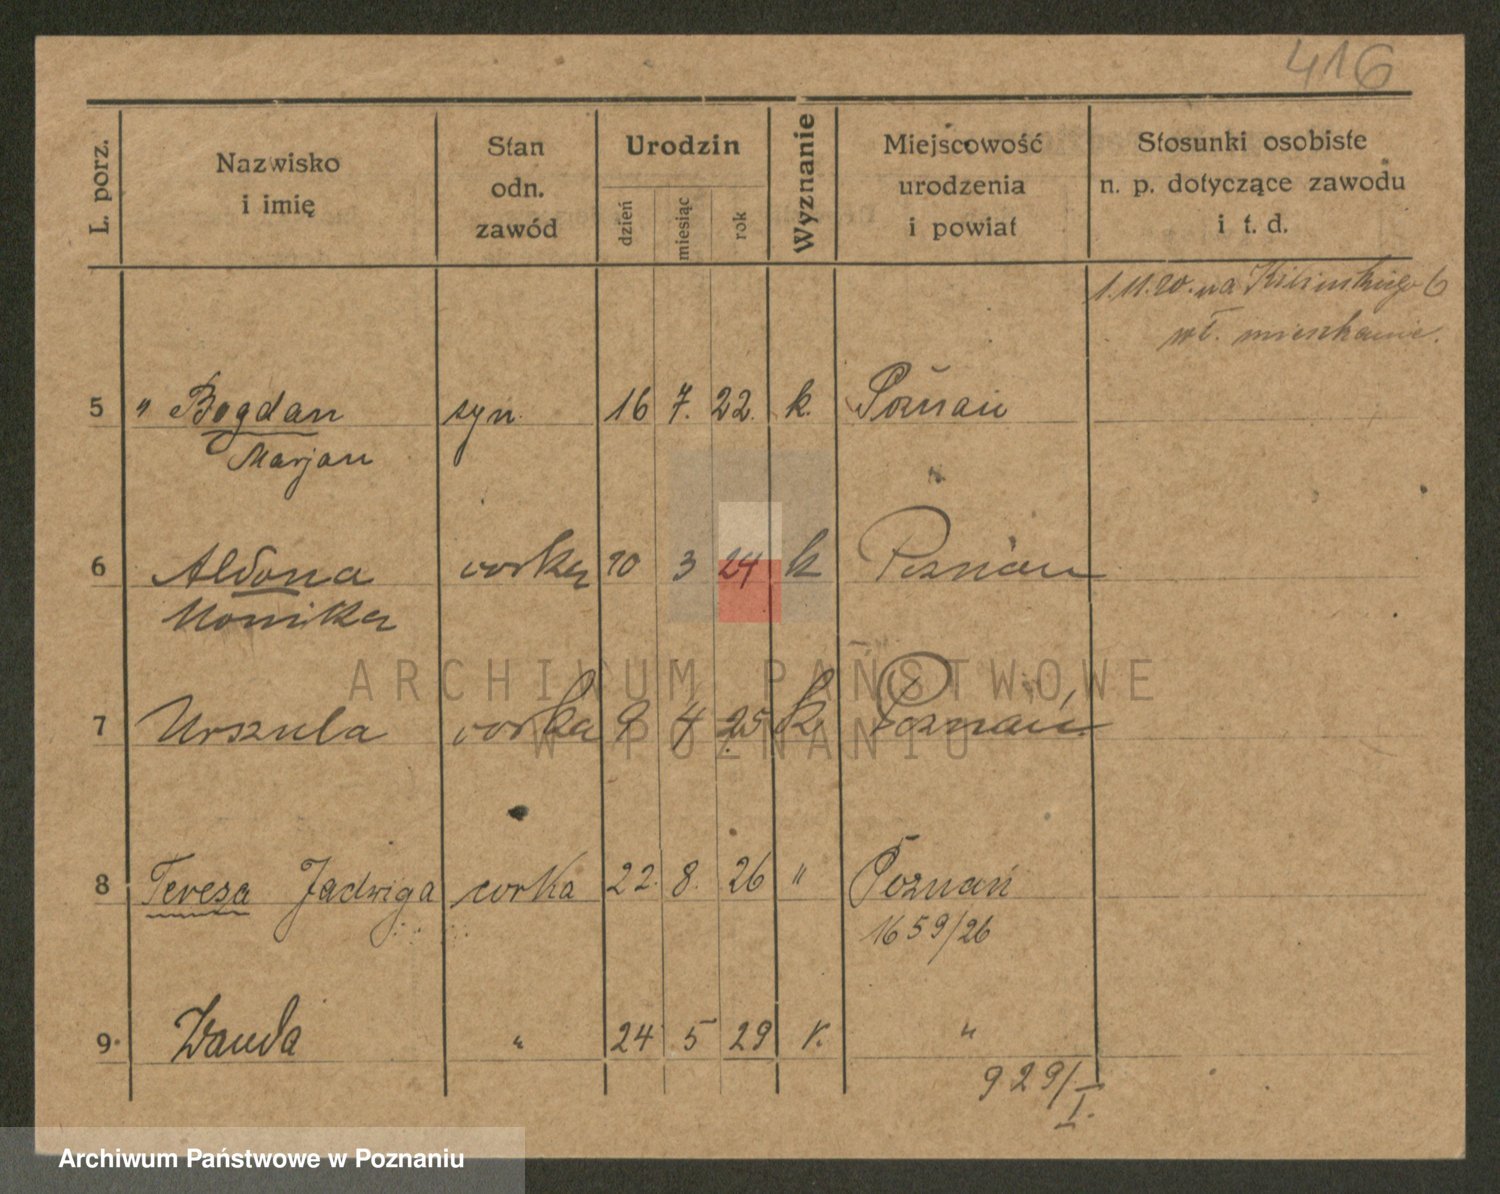 416
L. porz.
Nazwisko
i imię
Stan
odn.
zawód
Urodzin
dzień
miesiąc
rok
Wyznanie
Miejscowość
urodzenia
i powiat
Stosunki osobiste
n. p. dotyczące zawodu
i t. d.
1.11.20. na Kilińskiego 6
wł. mieszkanie.
5 " Bogdan syn. 16 7. 22. k. Poznań
Marjan
6 Aldona corka 10 3 24 k Poznań
Monika
7 Urszula corka 9 4 25 k Poznań
8 Teresa Jadwiga corka 22. 8. 26 " Poznań
1659/26
9. Wanda " 24 5 29 k. "
929/I.
ARCHIWUM PAŃSTWOWE
W POZNANIU
Archiwum Państwowe w Poznaniu